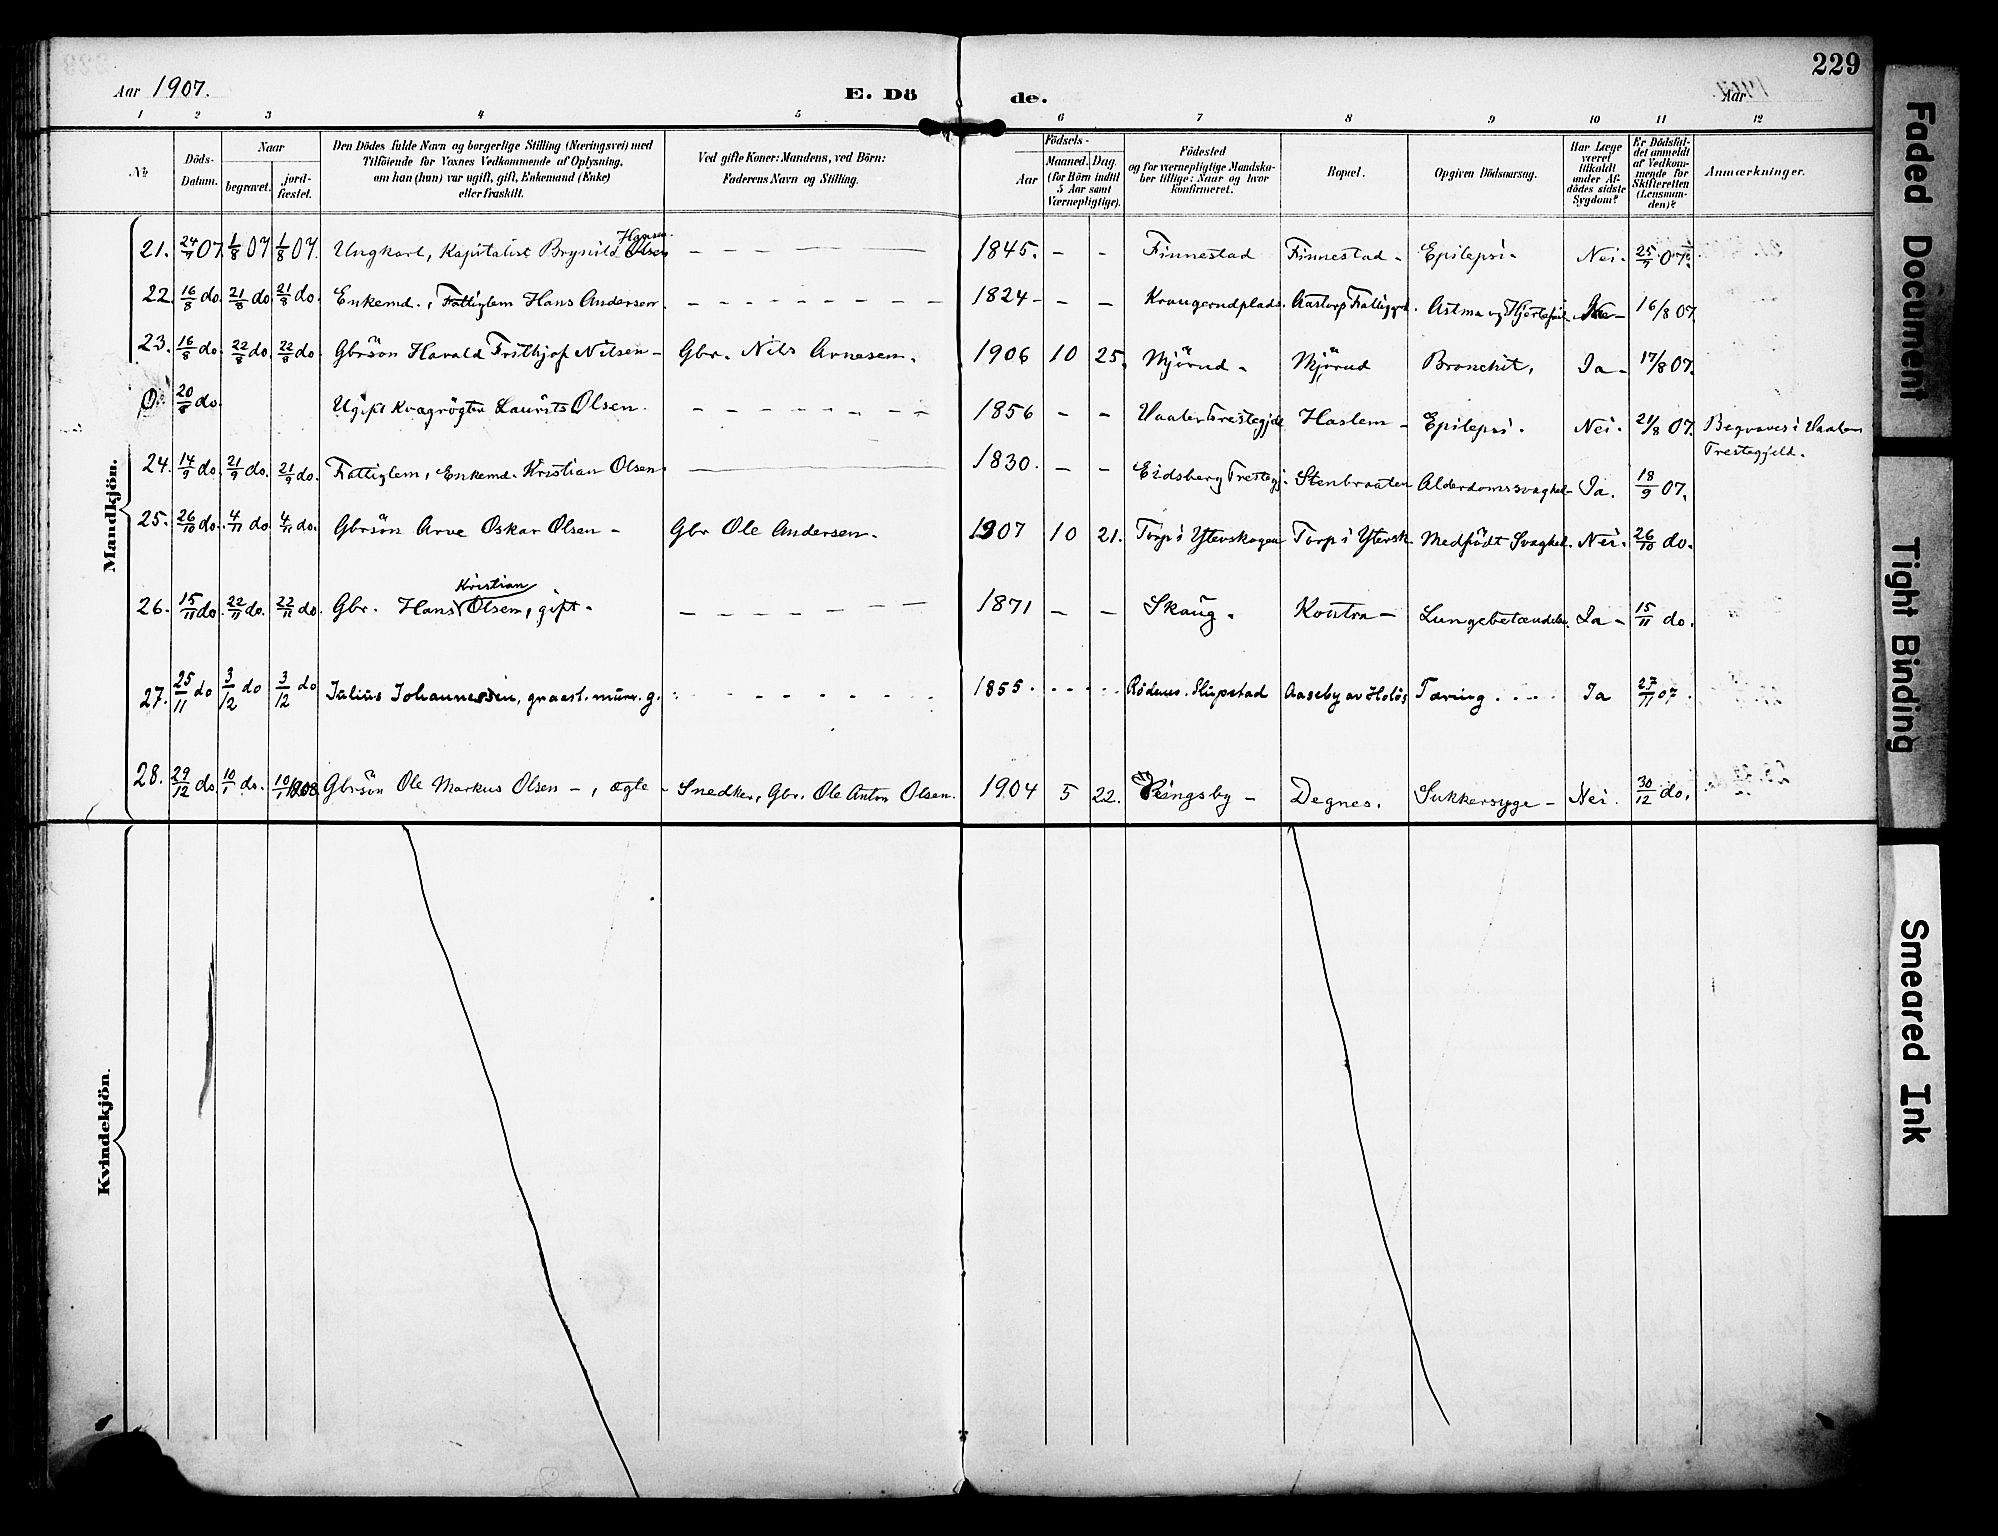 229
Aar 1907. E. Dö de. Aar
1 2 3 4 5 6 7 8 9 10 11 12
No
Döds-Datum.
Naar
begravet. jordfæstet.
Den Dödes fulde Navn og borgerlige Stilling (Næringsvei) med
Tilföiende for Voxnes Vedkommende af Oplysning,
om han (hun) var ugift, gift, Enkemand (Enke)
eller fraskilt.
Ved gifte Koner: Mandens, ved Börn:
Faderens Navn og Stilling.
Födsels-
Aar Maaned. Dag.
(for Börn indtil
5 Aar samt
Værnepligtige).
Födested
og for værnepligtige Mandska-
ber tillige: Naar og hvor
konfirmeret.
Bopæl.
Opgiven Dödsaarsag.
Har Læge
været
tilkaldt
under Af-
dödes sidste
Sygdom?
Er Dödsfal-
det anmeldt
af Vedkom-
mende for
Skifteretten
(Lensman-
den)?
Anmærkninger.
Mandkjön.
21. 24/7 07 1/8 07 1/8 07. Ungkarl, Kapitalist Brynild Hansen Olsen - - - 1845. - - Finnestad Finnestad - Epilepsi - Nei. 25/7 07.
22. 16/8 do. 21/8 do 21/8 do. Enkemd., Fattiglem Hans Andersen. - - - 1824 - - - Kraugerudplads. Aastorp Fattiggrd. Astma og 16/8 07
23. 16/8 do. 22/8 do. 22/8 do Gbrsön Harald Frithjof Nilsen - Gbr. Nils Arnesen. 1906 10 25. Mjörud - Mjörud Bronchit. Ja - 17/8 07.
20/8 do. Ugift Kvægrögter Laurits Olsen. - - - 1856 - - Vaaler Prestegjeld Haslem - Epilepsi. Nei. 21/8 07. Begraves i Vaaler
Prestegjeld.
24. 14/9 do. 21/9 do. 21/9 do. Fattiglem, Enkemd. Kristian Olsen. 1830. - - Eidsberg Prestegj. Stenbraaten Alderdomssvaghed - Ja. 18/9 07.
25. 26/10 do. 4/11 do 4/11 do. Gbrsön Arve Oskar Olsen - Gbr Ole Andersen. 1907 10 21. Torp i Yterskogen Torp i Ytersk. Medfödt Svaghed. Nei. 26/10 do.
26. 15/11 do. 22/11 do. 22/11 do. Gbr. Hans Kristian Olsen, gift. - - - 1871 - - Skaug. Kontra - Lungebetændelse. Ja - 15/11 do.
27. 25/11 do 3/12 do 3/12 do Julius Johannessen, graast. murer. g. - - - 1855. Rödenes. Slupstad Aaseby av Holös Tæring. Ja 27/11 07.
28. 29/12 do. 10/1 do. 10/1 1908 Gbrsön Ole Markus Olsen -, ægte - Snedker, Gbr. Ole Anton Olsen. 1904 5 22. Ringsby - Degnes. Sukkersyge - Nei. 30/12 do.
Kvindekjön.
Faded Document
Tight Binding
Smeared Ink